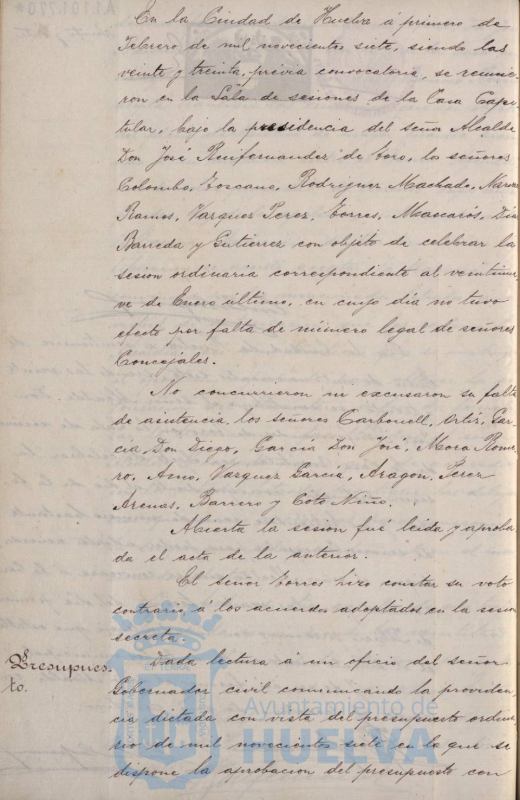 En la Ciudad de Huelva á primero de
Febrero de mil novecientos siete, siendo las
veinte y treinta, previa convocatoria, se reunie-
ron en la Sala de sesiones de la Casa Capi-
tular, bajo la presidencia del señor Alcalde
Don José Renfernandez de Toro, los señores
Colombo, Toscano, Rodriguez Machado,
Ramos, Vazquez Perez, Torres, Mascarós, Diaz
Barreda y Gutierrez con objeto de celebrar la
sesion ordinaria correspondiente al veintinue
ve de Enero último, en cuyo dia no tuvo
efecto por falta de número legal de señores
Concejales.
No concurrieron ni excusaron su falta
de asistencia, los señores Carbonell, Ortiz, Gar-
cia Don Diego, Garcia Don José, Mora Rome-
ro, Vazquez Garcia, Aragon, Perez
Arenas, Barrero y Coto Niño.
Abierta la sesion fué leida y aproba-
da el acta de la anterior.
El señor Torres hizo constar su voto
contrario á los acuerdos adoptados en la sesion
secreta.
Presupues-
to.
Dada lectura á un oficio del señor
Gobernador civil comunicando la providen-
cia dictada con vista del presupuesto ordina-
rio de mil novecientos siete en la que se
dispone la aprobacion del presupuesto con
Ayuntamiento de
HUELVA